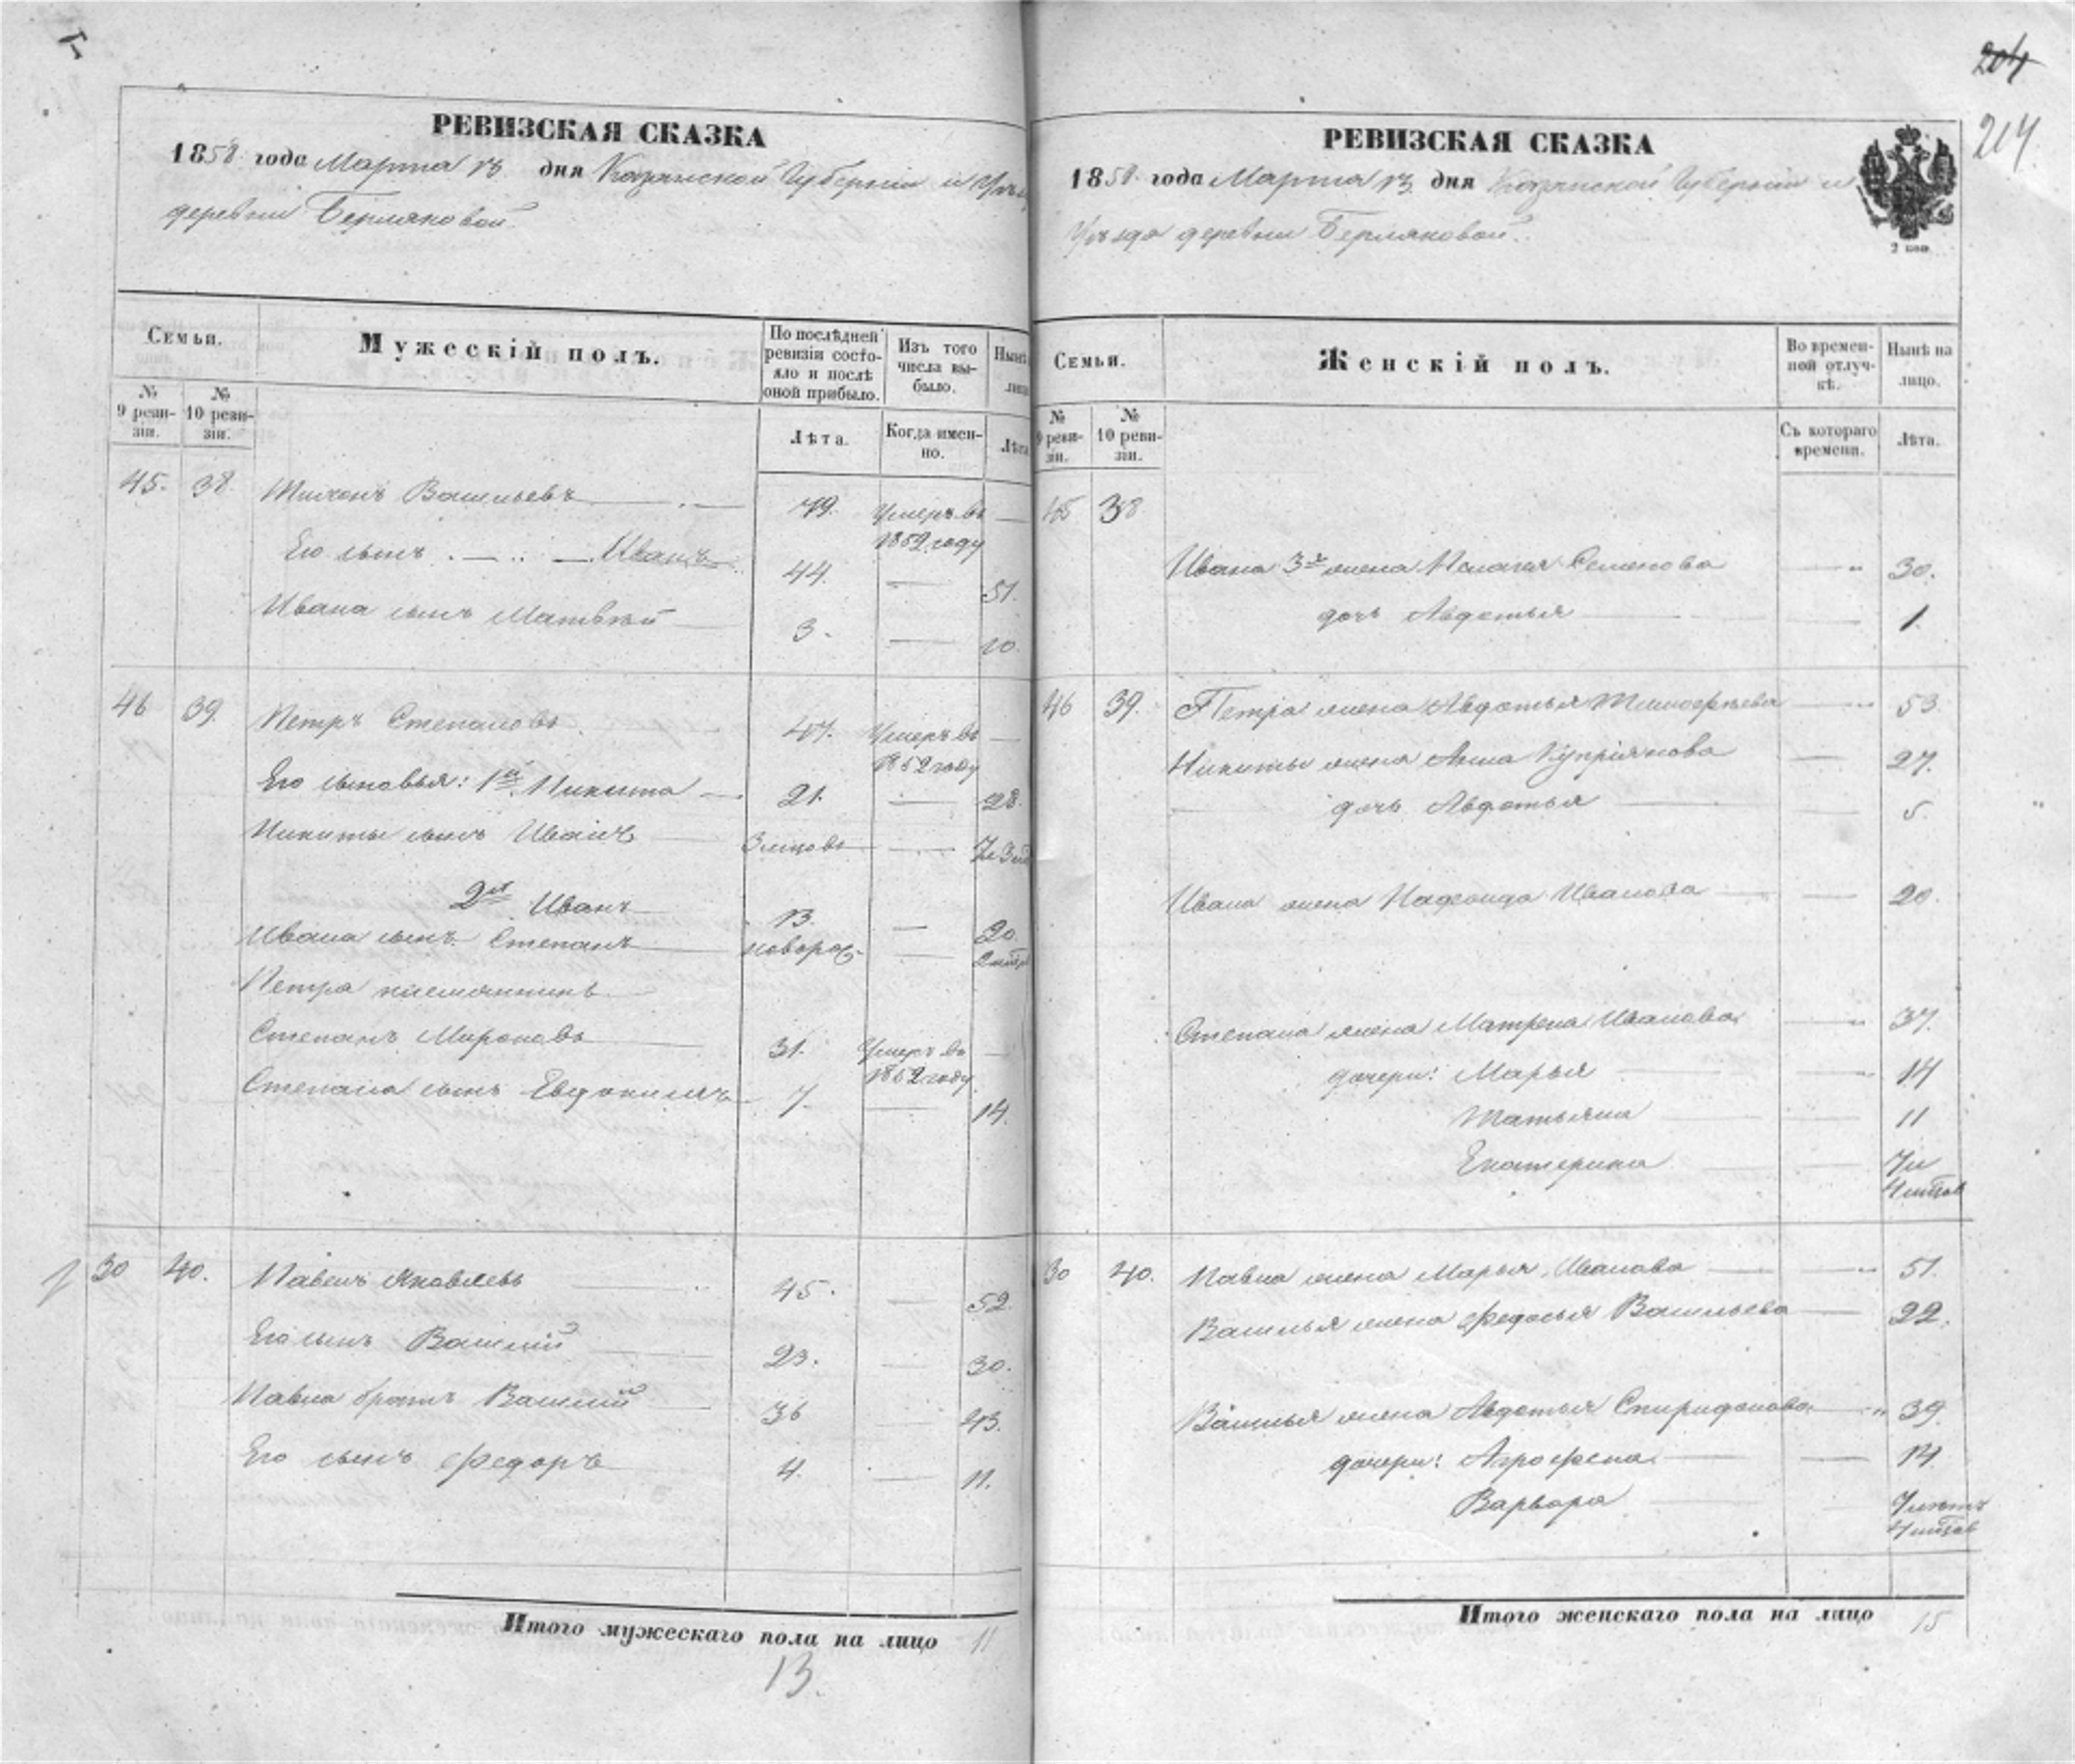 204
214
РЕВИЗСКАЯ СКАЗКА
1858 года Марта дня Казанской Губернiи и
деревни Берляковой.
Семьи.
№ 9 реви-зiи.
№ 10 реви-зiи.
Мужескiй полъ.
По послѣдней ревизiи состо-яло и послѣ оной прибыло.
Изъ того числа вы-было.
Нынѣ
Лѣта.
Когда имен-но.
Лѣта
45. 38. Тихонъ Васильевъ 79. Умеръ въ 1852 году
Его сынъ Иванъ 44. 51.
Ивана сынъ Матвѣй 3. 10.
46 39. Петръ Степановъ 47. Умеръ въ 1852 году
Его сыновья: 1й Никита 21. 28.
Никиты сынъ Иванъ 3 мцовъ
2й Иванъ 13. 20.
Ивана сынъ Степанъ новорож.
Петра племянникъ
Степанъ Мироновъ 31. Умеръ въ 1852 году
Степана сынъ Евдокимъ 7. 14.
30 40. Павелъ Яковлевъ 45. 52.
Его сынъ Василiй 23. 30.
Павла братъ Василiй 36 43.
Его сынъ Федоръ 4. 11.
Итого мужескаго пола на лицо 11
13.
РЕВИЗСКАЯ СКАЗКА
1858 года Марта дня Казанской Губернiи и
Уѣзда деревни Берляковой.
2 коп.
Семьи.
№ 9 реви-зiи.
№ 10 реви-зiи.
Женскiй полъ.
Во времен-ной отлуч-кѣ.
Нынѣ на лицо.
Съ котораго времени.
Лѣта.
45 38
Ивана 3я жена Пелагея Семенова 30.
дочь Авдотья 1.
46 39. Петра жена Авдотья Тимофеева 53.
Никиты жена Анна Купрiянова 27.
дочь Авдотья 5.
Ивана жена Иванова 20.
Степана жена Матрена Иванова 37.
дочери: Марья 14
Татьяна 11
Екатерина 7 и 4 мцов
30 40. Павла жена Марья Иванова 51.
Василья жена Федосья Васильева 22.
Василья жена Авдотья Спиридонова 39.
дочери: Аграфена 14
Варвара 7 лѣтъ 4 мцов
Итого женскаго пола на лицо 15